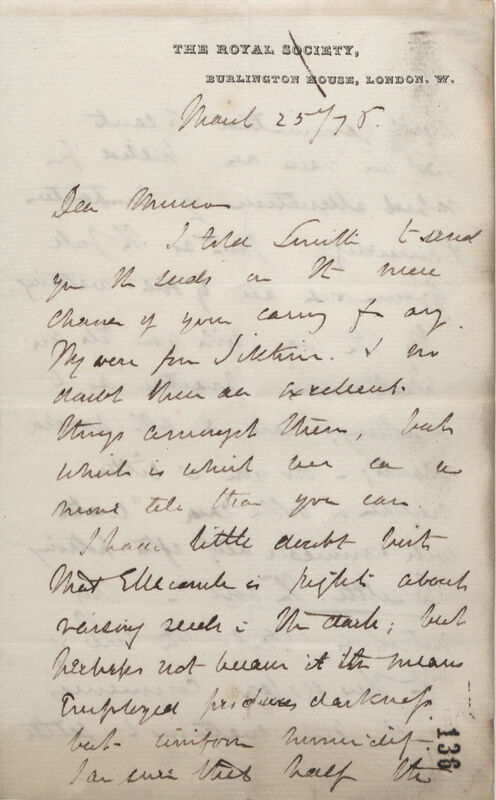 THE ROYAL SOCIETY,
BURLINGTON HOUSE, LONDON. W.
March 25/78.
Dear Munro
I told Smith to send
you the seeds on the mere
chance of your caring for any.
They were from Sikkim. I no
doubt there are excellent
things amongst them, but
which is which we can no
more tell than you can.
I have little doubt but
that Ellacombe is right about
raising seeds in the dark; but
perhaps not because it the means
Employed produces darkness
but uniform humidity.
I am sure that half the
136